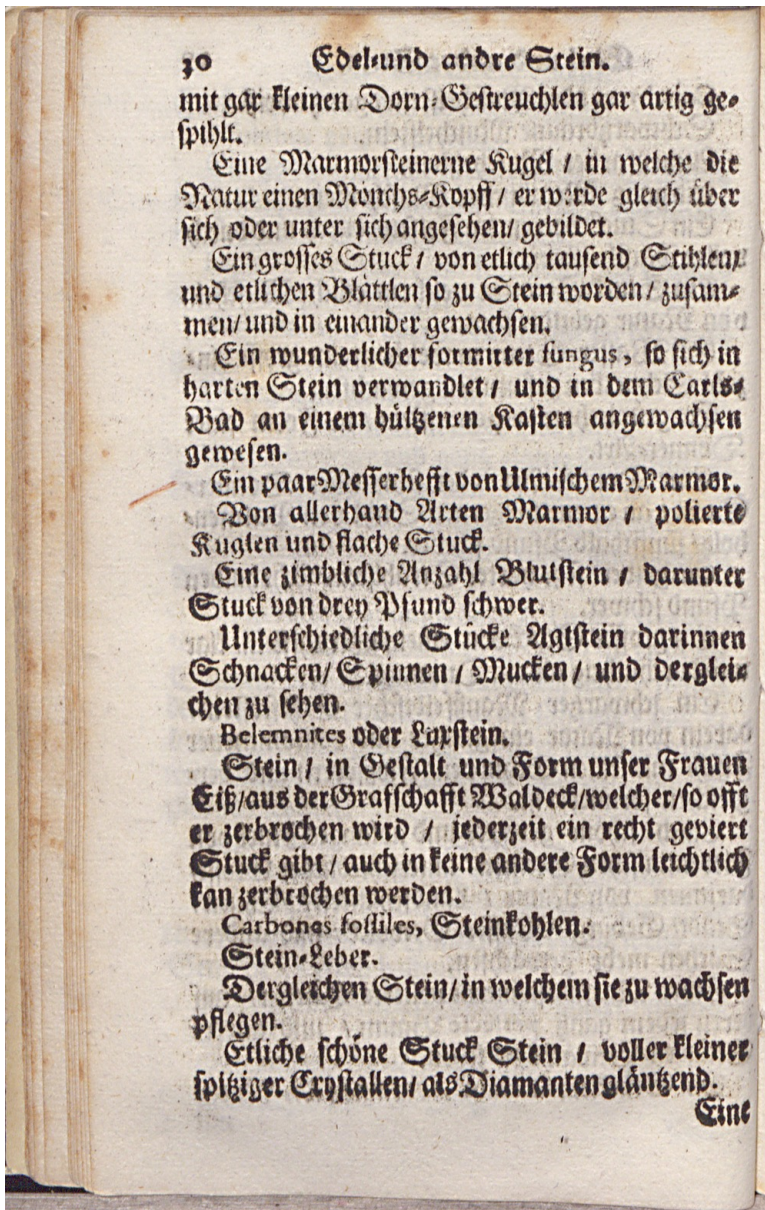 30 Edel-und andre Stein.
mit gar kleinen Dorn-Gestreuchlen gar artig ge-
spihlt.
Eine Marmorsteinerne Kugel / in welche die
Natur einen Mönchs-Kopff / er werde gleich über
sich oder unter sich angesehen / gebildet.
Ein grosses Stuck / von etlich tausend Stihlen /
und etlichen Blättlen so zu Stein worden / zusam-
men / und in einander gewachsen.
Ein wunderlicher formirter fungus, so sich in
harten Stein verwandlet / und in dem Carls-
Bad an einem hültzenen Kasten angewachsen
gewesen.
Ein paar Messerhefft von Ulmischem Marmor.
Von allerhand Arten Marmor / polierte
Kuglen und flache Stuck.
Eine zimbliche Anzahl Blutstein / darunter
Stuck von drey Pfund schwer.
Unterschiedliche Stücke Agtstein darinnen
Schnacken / Spinnen / Mucken / und derglei-
chen zu sehen.
Belemnites oder Luxstein.
Stein / in Gestalt und Form unser Frauen
Eiß / aus der Grafschafft Waldeck / welcher / so offt
er zerbrochen wird / jederzeit ein recht geviert
Stuck gibt / auch in keine andere Form leichtlich
kan zerbrochen werden.
Carbones fossiles, Steinkohlen.
Stein-Leber.
Dergleichen Stein / in welchem sie zu wachsen
pflegen.
Etliche schöne Stuck Stein / voller kleiner
spitziger Crystallen / als Diamanten gläntzend.
Eine